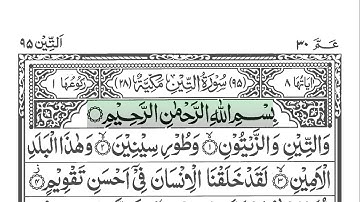 عَمَّ ٣٠ اَلتِّيْن ٩٥
اٰيَاتُهَا ٨ (٩٥) سُوْرَةُ التِّيْنِ مَكِّيَّةٌ (٢٨) رُكُوْعُهَا ١
بِسْمِ اللّٰهِ الرَّحْمٰنِ الرَّحِيْمِ
وَالتِّيْنِ وَالزَّيْتُوْنِ ۙ﴿۱﴾ وَطُوْرِ سِيْنِيْنَ ۙ﴿۲﴾ وَهٰذَا الْبَلَدِ
الْاَمِيْنِ ۙ﴿۳﴾ لَقَدْ خَلَقْنَا الْاِنْسَانَ فِيْۤ اَحْسَنِ تَقْوِيْمٍ ۫﴿۴﴾